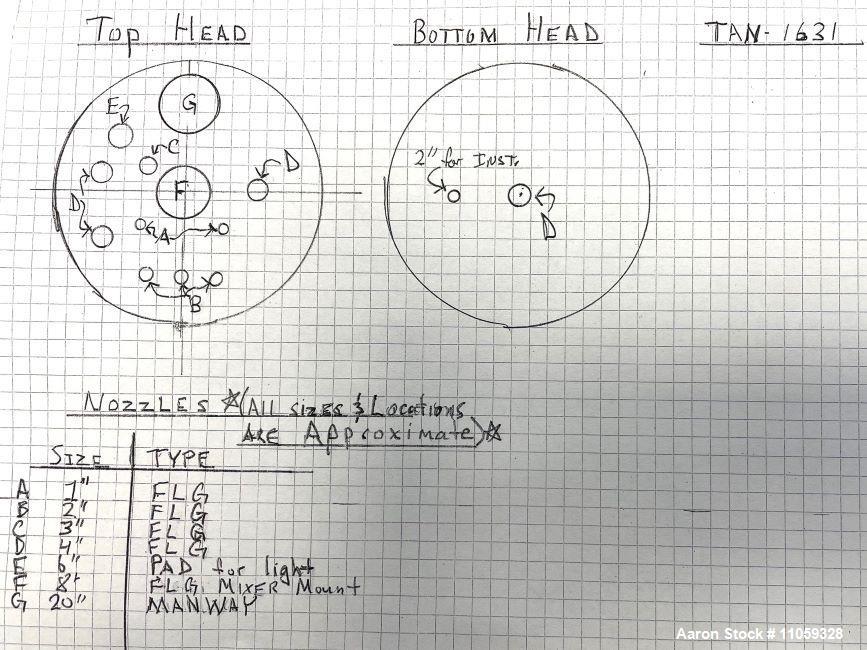 Top HEAD
BOTTOM HEAD
TAN-1631
E
G
C
D
F
D
A
B
2" for INST.
D
NOZZLES ☆(ALL sizes & Locations
ARE Approximate)☆
SIZE TYPE
A 1" FLG
B 2" FLG
C 3" FLG
D 4" FLG
E 6" PAD for light
F 8" FLG. MIXER Mount
G 20" MANWAY
Aaron Stock # 11059328